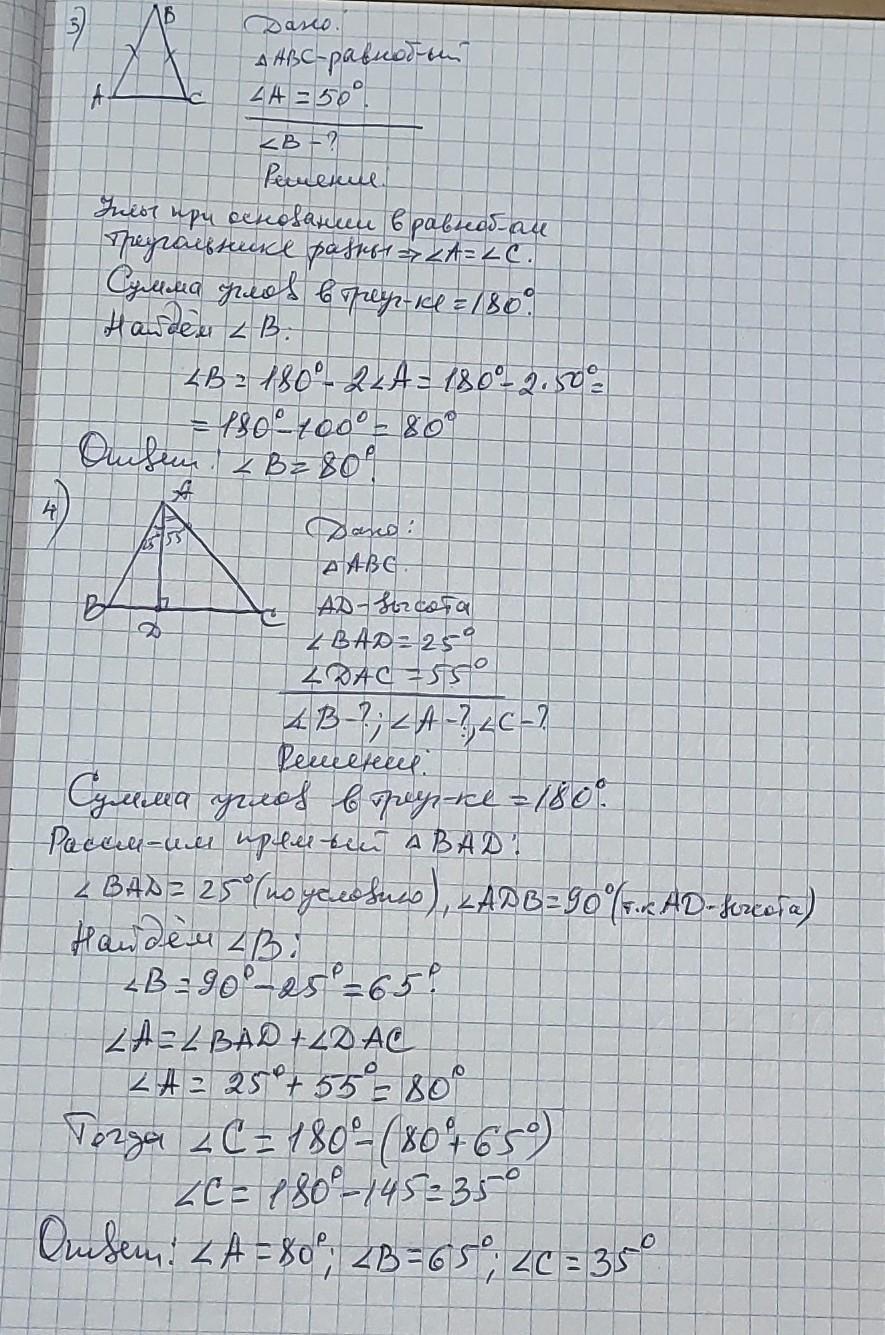 3)
B
A
C
Дано:
△ABC-равноб-ый
∠A = 50°.
∠B - ?
Решение.
Углы при основании в равноб-ом
треугольнике равны ⇒ ∠A = ∠C.
Сумма углов в треуг-ке = 180°.
Найдём ∠B:
∠B = 180° - 2∠A = 180° - 2·50° =
= 180° - 100° = 80°
Ответ: ∠B = 80°.
4)
A
25 55
B
D
C
Дано:
△ABC.
AD-высота
∠BAD = 25°
∠DAC = 55°
∠B - ?; ∠A - ?, ∠C - ?
Решение.
Сумма углов в треуг-ке = 180°.
Рассм-им прям-ый △BAD:
∠BAD = 25° (по условию), ∠ADB = 90° (т.к AD-высота)
Найдём ∠B:
∠B = 90° - 25° = 65°.
∠A = ∠BAD + ∠DAC
∠A = 25° + 55° = 80°
Тогда ∠C = 180° - (80° + 65°)
∠C = 180° - 145 = 35°
Ответ: ∠A = 80°; ∠B = 65°; ∠C = 35°